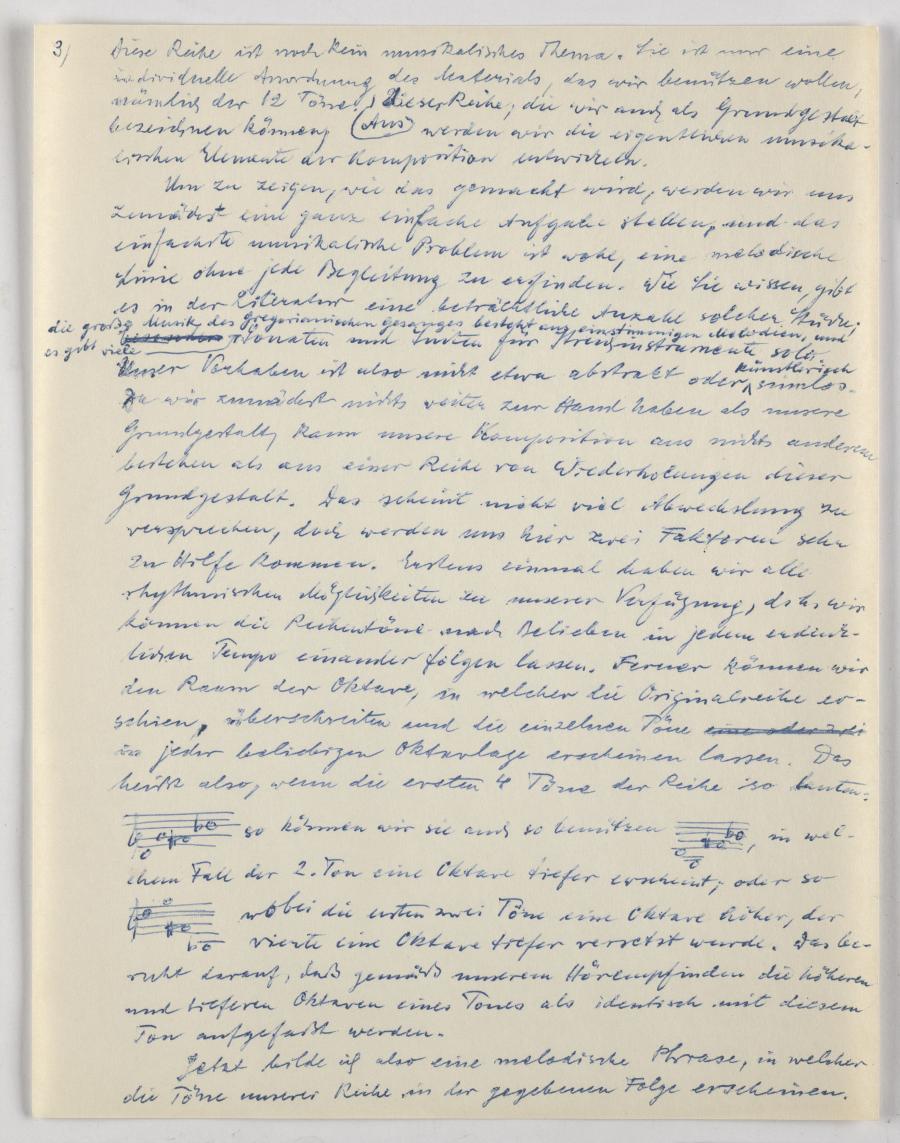 3)
Diese Reihe ist noch kein musikalisches Thema. Sie ist nur eine
individuelle Anordnung des Materials, das wir benützen wollen,
nämlich der 12 Töne. Dieser Reihe, die wir auch als Grundgestalt
bezeichnen können, (Aus) werden wir die eigentlichen musika-
lischen Elemente der Komposition entwickeln.
Um zu zeigen, wie das gemacht wird, werden wir uns
zunächst eine ganz einfache Aufgabe stellen, und das
einfachste musikalische Problem ist wohl, eine melodische
Linie ohne jede Begleitung zu erfinden. Wie Sie wissen, gibt
es in der Literatur eine beträchtliche Anzahl solcher Stücke;
die große Musik des Gregorianischen Gesanges besteht aus einstimmigen Melodien, und
es gibt viele Sonaten und Suiten für Streichinstrumente solo.
Unser Vorhaben ist also nicht etwa abstrakt oder künstlerisch sinnlos.
Da wir zunächst nichts weiter zur Hand haben als unsere
Grundgestalt, kann unsere Komposition aus nichts anderem
bestehen als aus einer Reihe von Wiederholungen dieser
Grundgestalt. Das scheint nicht viel Abwechslung zu
versprechen, doch werden uns hier zwei Faktoren sehr
zu Hilfe kommen. Erstens einmal haben wir alle
rhythmischen Möglichkeiten zu unserer Verfügung, d.h. wir
können die Reihentöne nach Belieben in jedem erdenk-
lichen Tempo einander folgen lassen. Ferner können wir
den Raum der Oktave, in welcher die Originalreihe er-
schien, überschreiten und die einzelnen Töne eine oder zwei
in jeder beliebigen Oktavlage erscheinen lassen. Das
heißt also, wenn die ersten 4 Töne der Reihe so lauten:
so können wir sie auch so benützen , in wel-
chem Fall der 2. Ton eine Oktave tiefer erscheint; oder so
wobei die ersten zwei Töne eine Oktave höher, der
vierte eine Oktave tiefer versetzt wurde. Das be-
ruht darauf, daß gemäß unserem Hörempfinden die höheren
und tieferen Oktaven eines Tones als identisch mit diesem
Ton aufgefaßt werden.
Jetzt bilde ich also eine melodische Phrase, in welcher
die Töne unserer Reihe in der gegebenen Folge erscheinen.